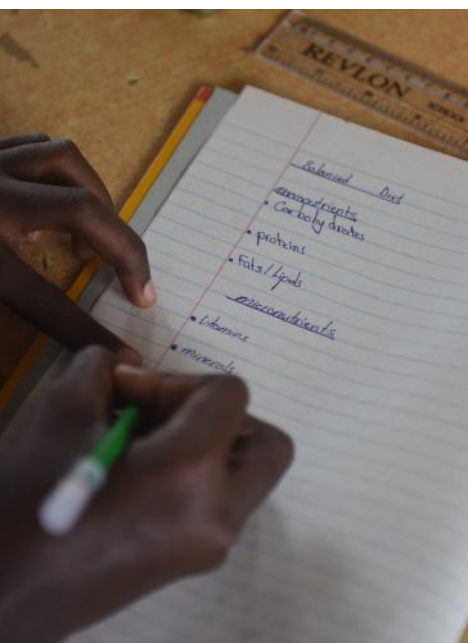 REVLON
Balanced Diet
macronutrients
• Carbohydrates
• proteins
• Fats/Lipids
micronutrients
• Vitamins
• minerals